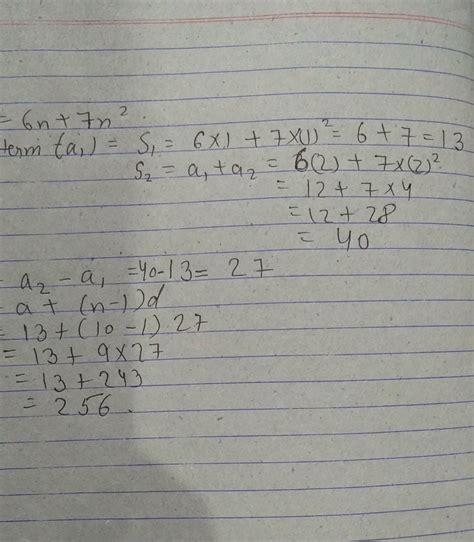 = 6n + 7n².
term (a₁) = S₁ = 6×1 + 7×(1)² = 6 + 7 = 13
S₂ = a₁ + a₂ = 6(2) + 7×(2)²
= 12 + 7 × 4
= 12 + 28
= 40
= a₂ - a₁ = 40-13 = 27
= a + (n-1)d
= 13 + (10-1) 27
= 13 + 9×27
= 13 + 243
= 256.